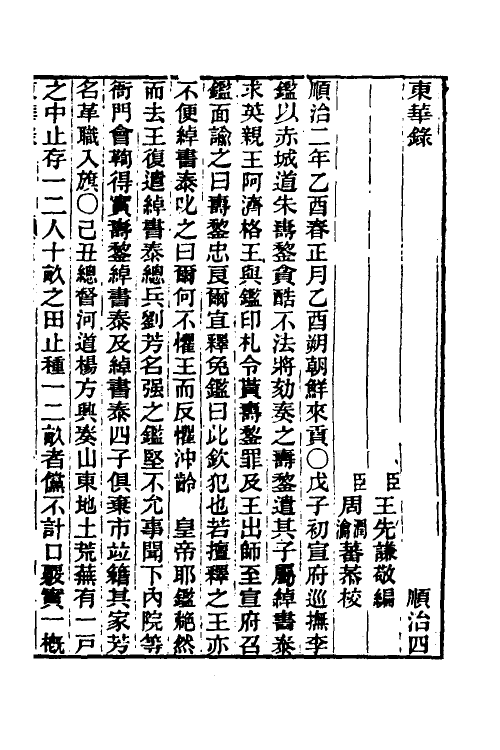 東華錄　順治四
臣王先謙敬編
臣周潤蕃周瀹蕃恭校
順治二年乙酉春正月乙酉朔朝鮮來貢〇戊子初宣府巡撫李
鑑以赤城道朱壽鋆貪酷不法將劾奏之壽鋆遣其子屬綽書泰
求英親王阿濟格王與鑑印札令貰壽鋆罪及王出師至宣府召
鑑面諭之曰壽鋆忠良爾宜釋免鑑曰此欽犯也若擅釋之王亦
不便綽書泰叱之曰爾何不懼王而反懼沖齡　皇帝耶鑑艴然
而去王復遣綽書泰總兵劉芳名强之鑑堅不允事聞下內院等
衙門會鞫得實壽鋆綽書泰及綽書泰四子俱棄市竝籍其家芳
名革職入旗〇己丑總督河道楊方興奏山東地土荒蕪有一戶
之中止存一二人十畝之田止種一二畝者儻不計口覈實一槪